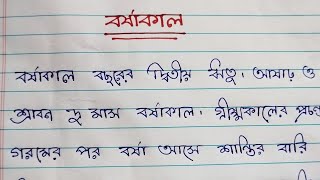 বর্ষাকাল
বর্ষাকাল বছরের দ্বিতীয় ঋতু. আষাঢ় ও
শ্রাবন দু মাস বর্ষাকাল. গ্রীষ্মকালের প্রচণ্ড
গরমের পর বর্ষা আসে শান্তির বারি